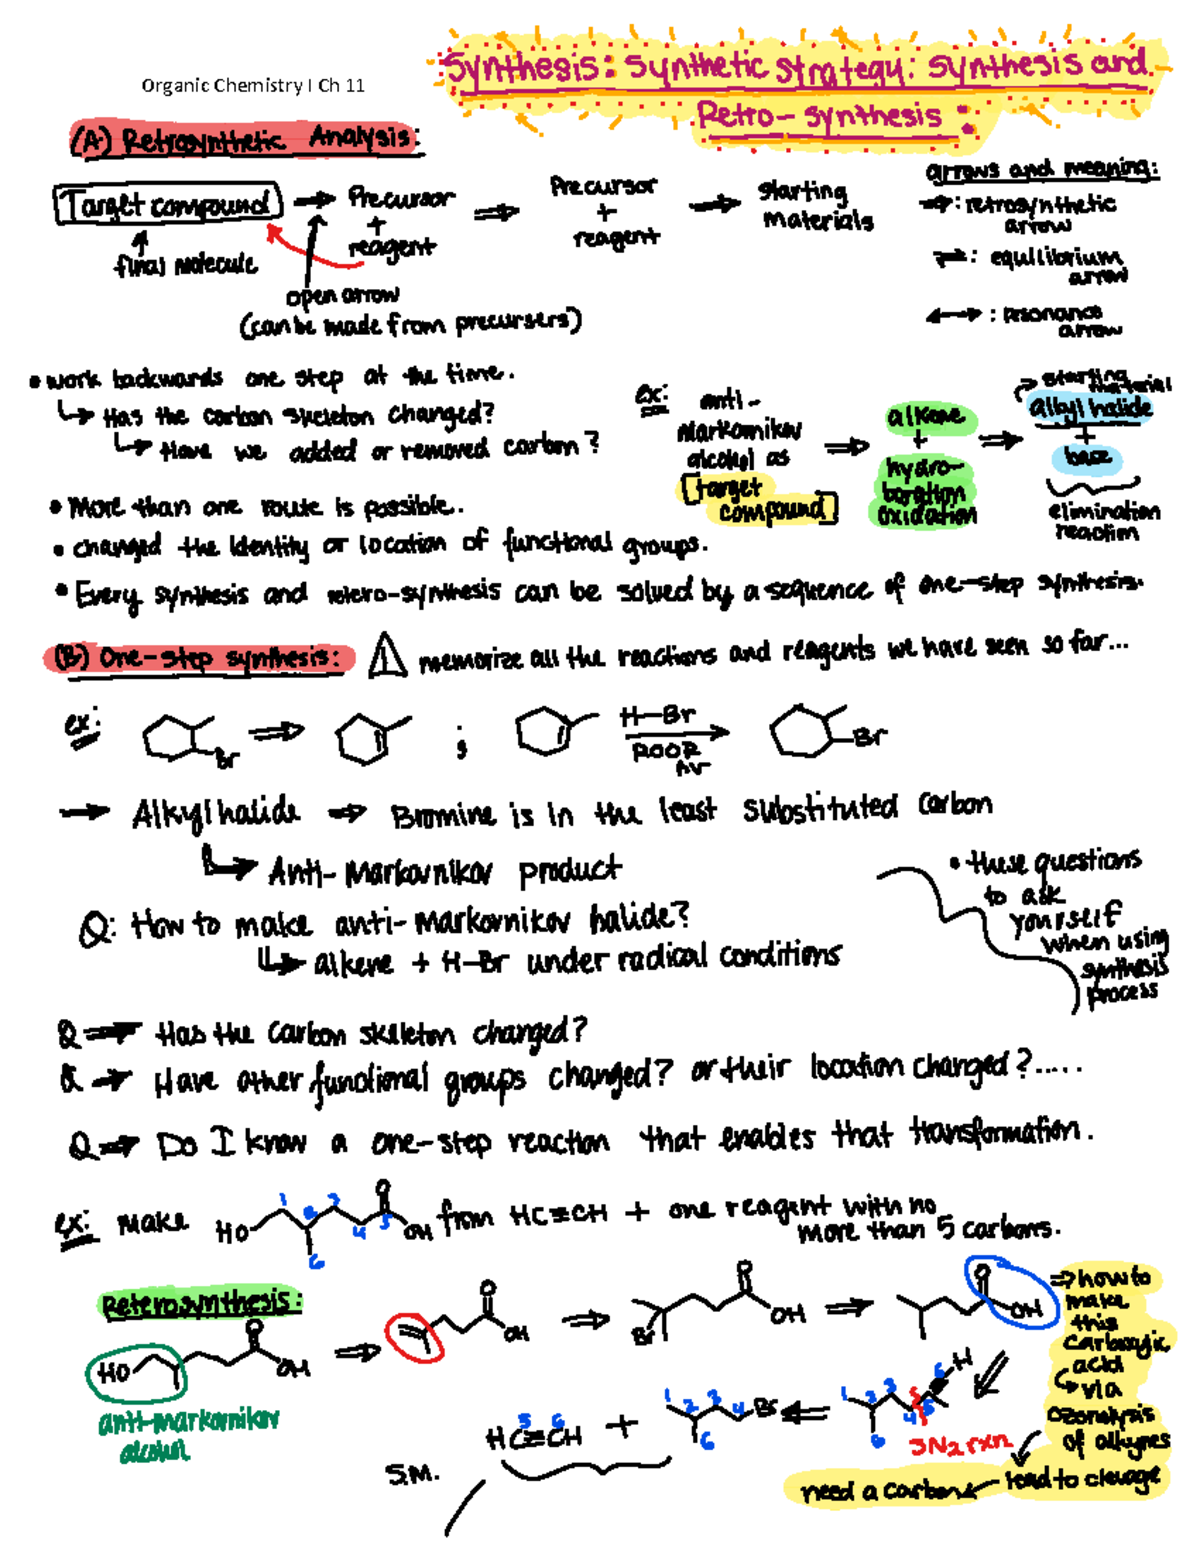 Organic Chemistry I Ch 11
Synthesis: Synthetic strategy: synthesis and
Retro-synthesis:
(A) Retrosynthetic Analysis:
Target compound ⇒ Precursor + reagent ⇒ Precursor + reagent ⇒ starting materials
final molecule
open arrow
(can be made from precursers)
arrows and meaning:
⇒: retrosynthetic arrow
⇌: equilibrium arrow
↔: resonance arrow
• work backwards one step at the time.
↳ Has the carbon skeleton changed?
↳ Have we added or removed carbon?
• More than one route is possible.
• changed the identity or location of functional groups.
• Every synthesis and retero-synthesis can be solved by a sequence of one-step synthesis.
ex: anti-
Markornikov
alcohol as
[target
compound]
⇒ alkene
+
hydro-
boration
oxidation
⇒ starting material
alkyl halide
+
base
elimination
reaction
(B) One-step synthesis: ! memorize all the reactions and reagents we have seen so far...
ex: Br ⇒ ; H-Br
ROOR
hv
Br
→ Alkyl halide ⇒ Bromine is in the least substituted carbon
↳ Anti-Markovnikov product
Q: How to make anti-Markovnikov halide?
↳ alkene + H-Br under radical conditions
• these questions
to ask
yourself
when using
synthesis
process
Q ⇒ Has the carbon skeleton changed?
Q → Have other functional groups changed? or their location changed?.....
Q ⇒ Do I know a one-step reaction that enables that transformation.
ex: Make HO 1 2 3 4 5 6 O OH from HC≡CH + one reagent with no
more than 5 carbons.
Reterosynthesis:
HO O OH ⇒ O OH ⇒ Br O OH ⇒ O OH
anti-markovnikov
alcohol
⇒ how to
make
this
carboxylic
acid
↳ via
ozonolysis
of alkynes
lead to cleavage
need a carbon
1 2 3 4 5 6 H 6
SN2 rxn
1 2 3 4 Br 6
HC≡CH +
5 6
S.M.